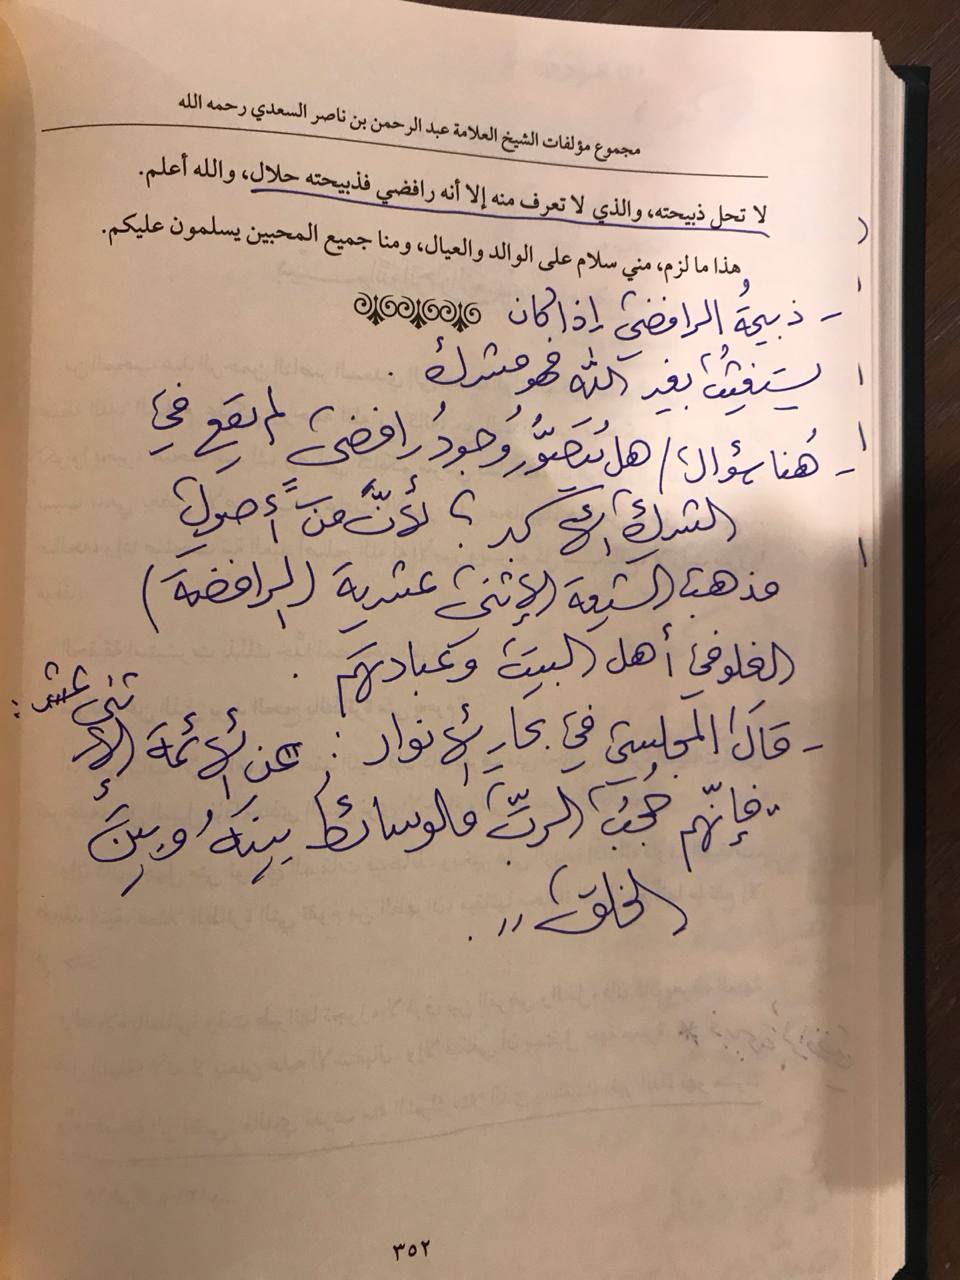 مجموع مؤلفات الشيخ العلامة عبد الرحمن بن ناصر السعدي رحمه الله
لا تحل ذبيحته، والذي لا تعرف منه إلا أنه رافضي فذبيحته حلال، والله أعلم.
هذا ما لزم، مني سلام على الوالد والعيال، ومنا جميع المحبين يسلمون عليكم.
- ذبيحةُ الرافضي إذا كان
يستغيث بغير الله فهو مشرك.
- هُنا سؤال / هل يُتصوَّر وجودُ رافضي لم يقع في
الشرك الأكبر؟ لأنَّ من أصول
مذهب الشيعة الإثني عشرية (الرافضة)
الغلو في أهل البيت وعبادتهم.
- قال المجلسي في بحار الأنوار: عن الأئمة الإثني عشر:
"فإنّهم حُجُبُ الربّ والوسائط بينهُ وبين
الخلق".
٣٥٢